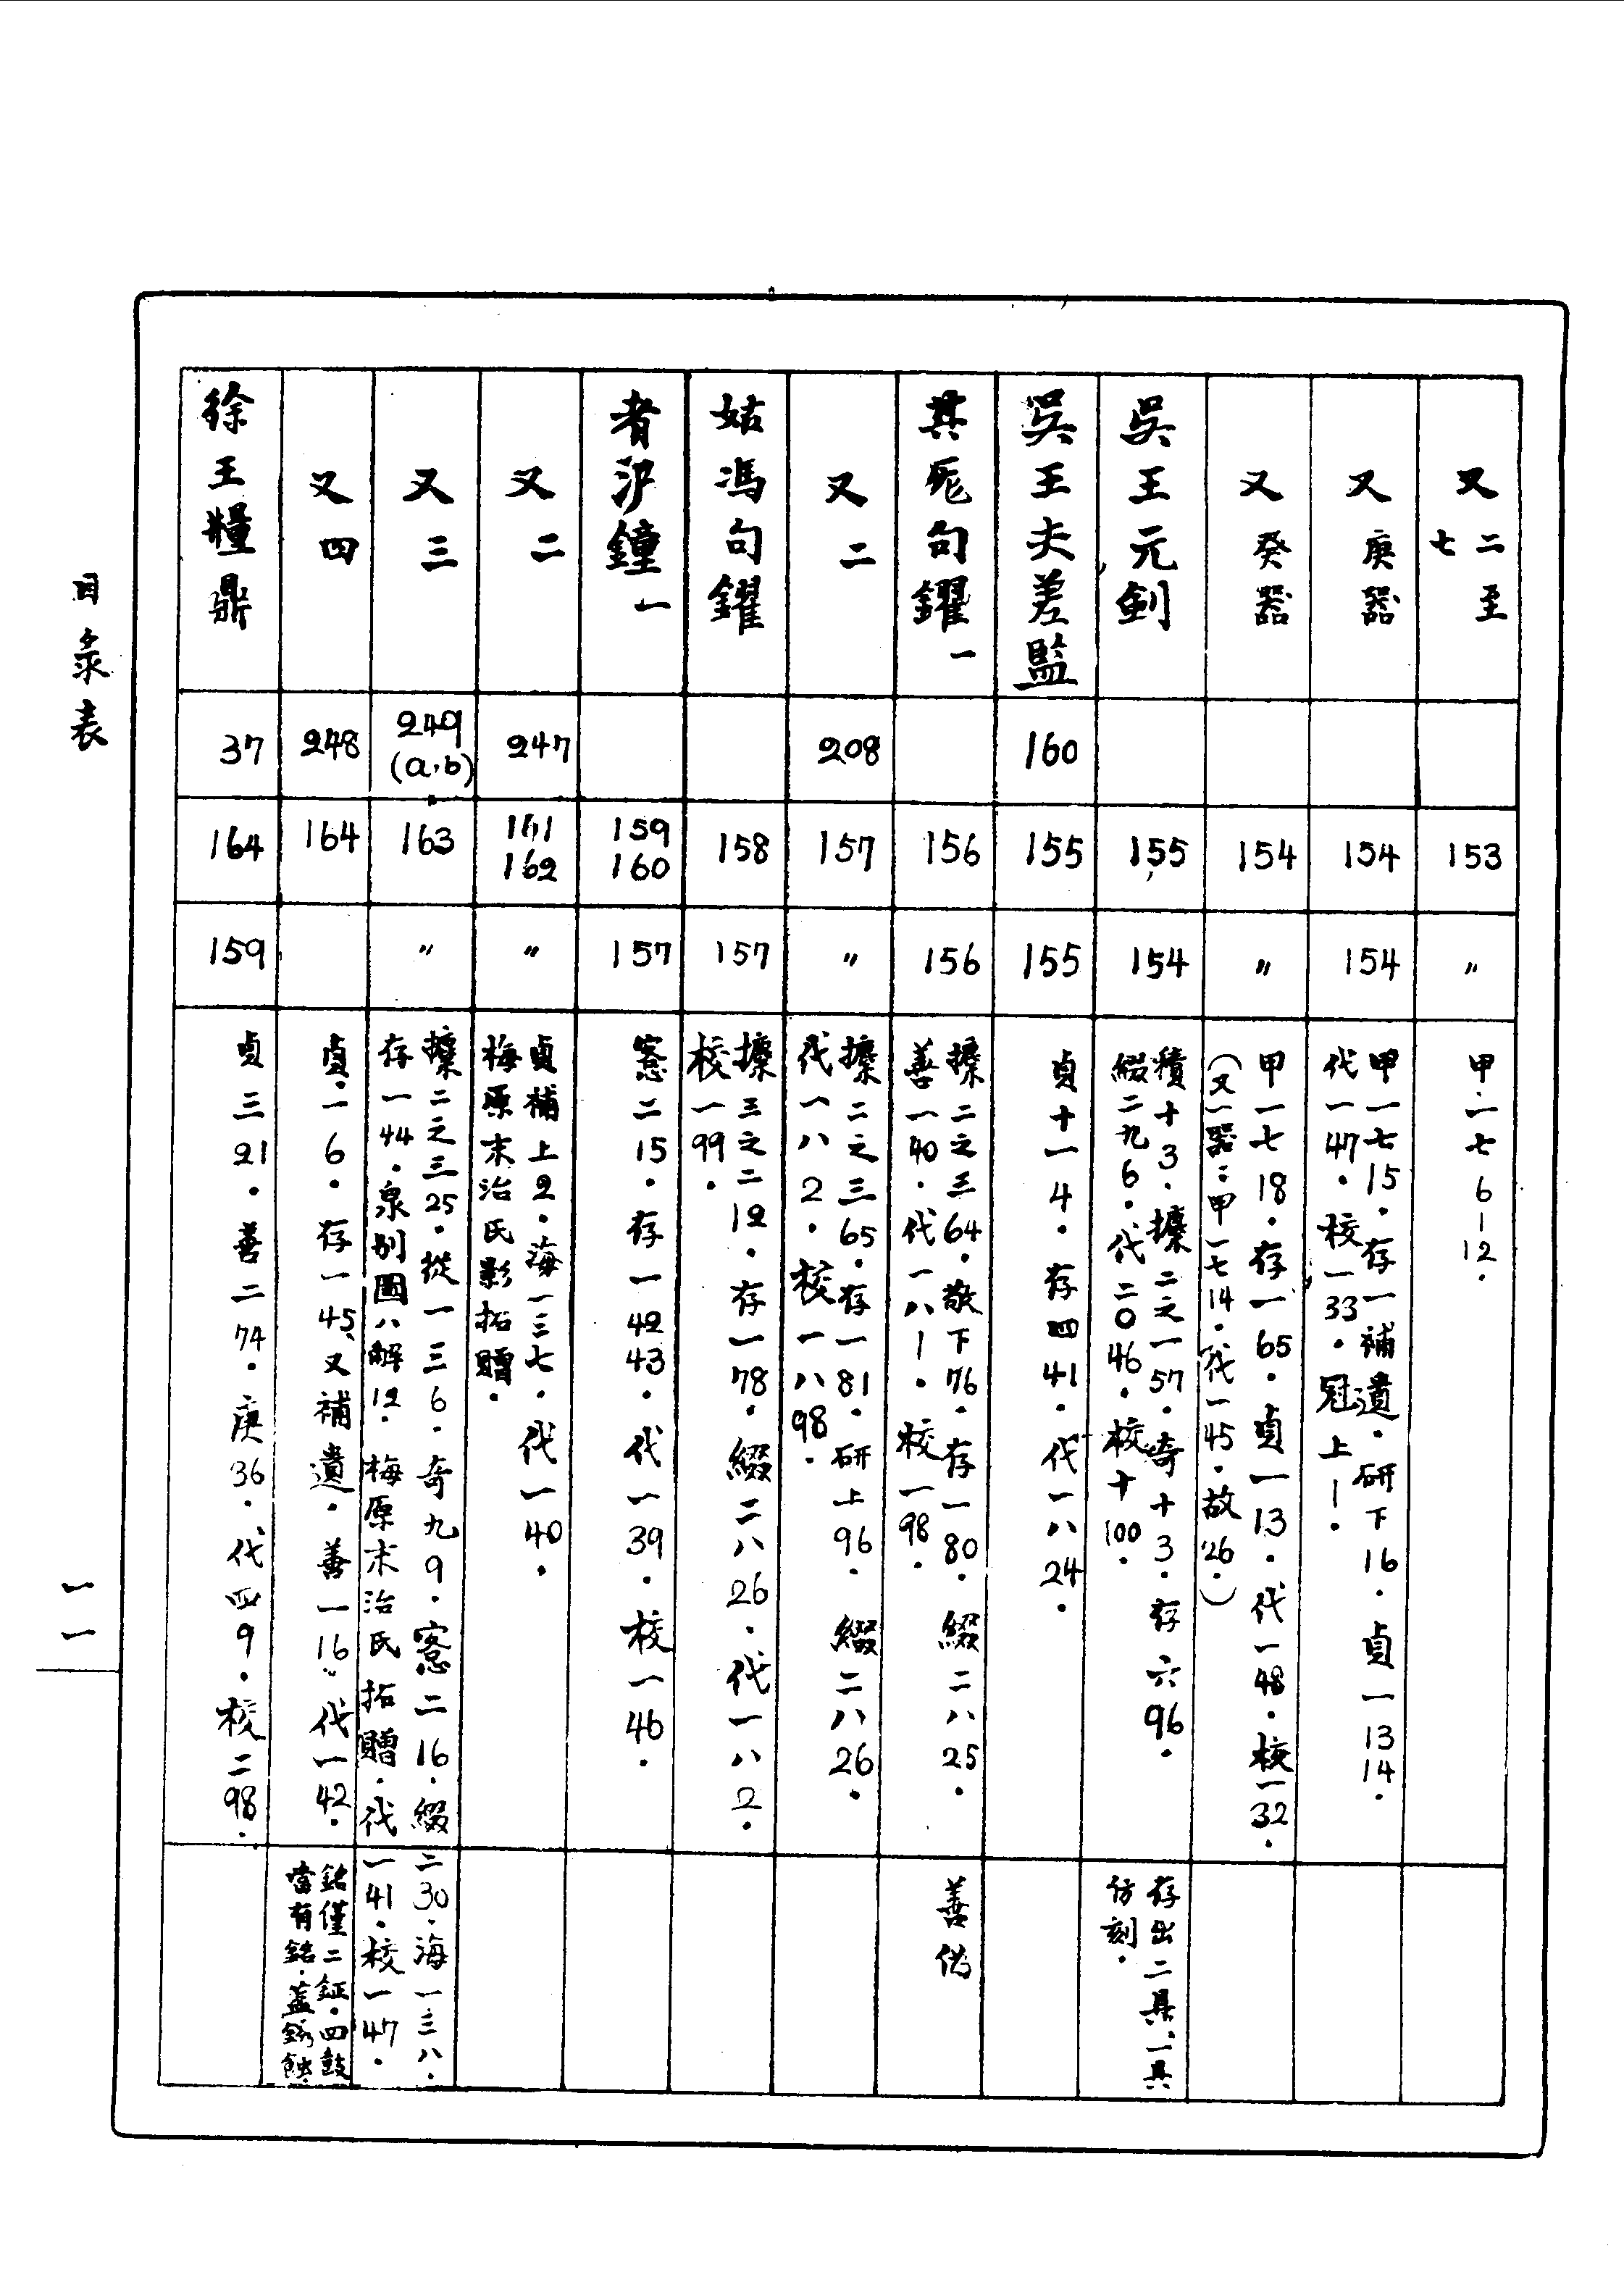 又二至七
153
〃
甲.一七6—12.
又庚器
154
154
甲一七15.存一補遺.研下16.貞一13 14.
代一47.校一33.冠上1.
又癸器
154
〃
甲一七18.存一65.貞一13.代一48.校一32.
(又一器:甲一七14.代一45.故26.)
吳王元劍
155
154
積十3.攈二之一57.奇十3.存六96.
綴二九6.代二〇46.校十100.
存出二具,一具
仿刻.
吳王夫差監
160
155
155
貞十一4.存四41.代一八24.
其𠩽句鑃一
156
156
攈二之三64.敬下76.存一80.綴二八25.
善一40.代一八1.校一98.
善偽
又二
208
157
〃
攈二之三65.存一81.研上96.綴二八26.
代一八2.校一八98.
姑馮句鑃
158
157
攈三之二12.存一78.綴二八26.代一八2.
校一99.
者沪鐘一
159
160
157
愙二15.存一42 43.代一39.校一46.
又二
247
161
162
〃
貞補上2.海一三七.代一40.
梅原末治氏影拓贈.
又三
249
(a,b)
163
〃
攈二之三25.從一三6.奇九9.愙二16.綴二30.海一三八.
存一44.泉別圖八解12.梅原末治氏拓贈.代一41.校一47.
又四
248
164
貞.一6.存一45,又補遺.善一16,代一42.
銘僅二鉦.四鼓
當有銘.蓋銹蝕.
徐王糧鼎
37
164
159
貞三21.善二74.庚36.代四9.校二98.
目彔表
一一